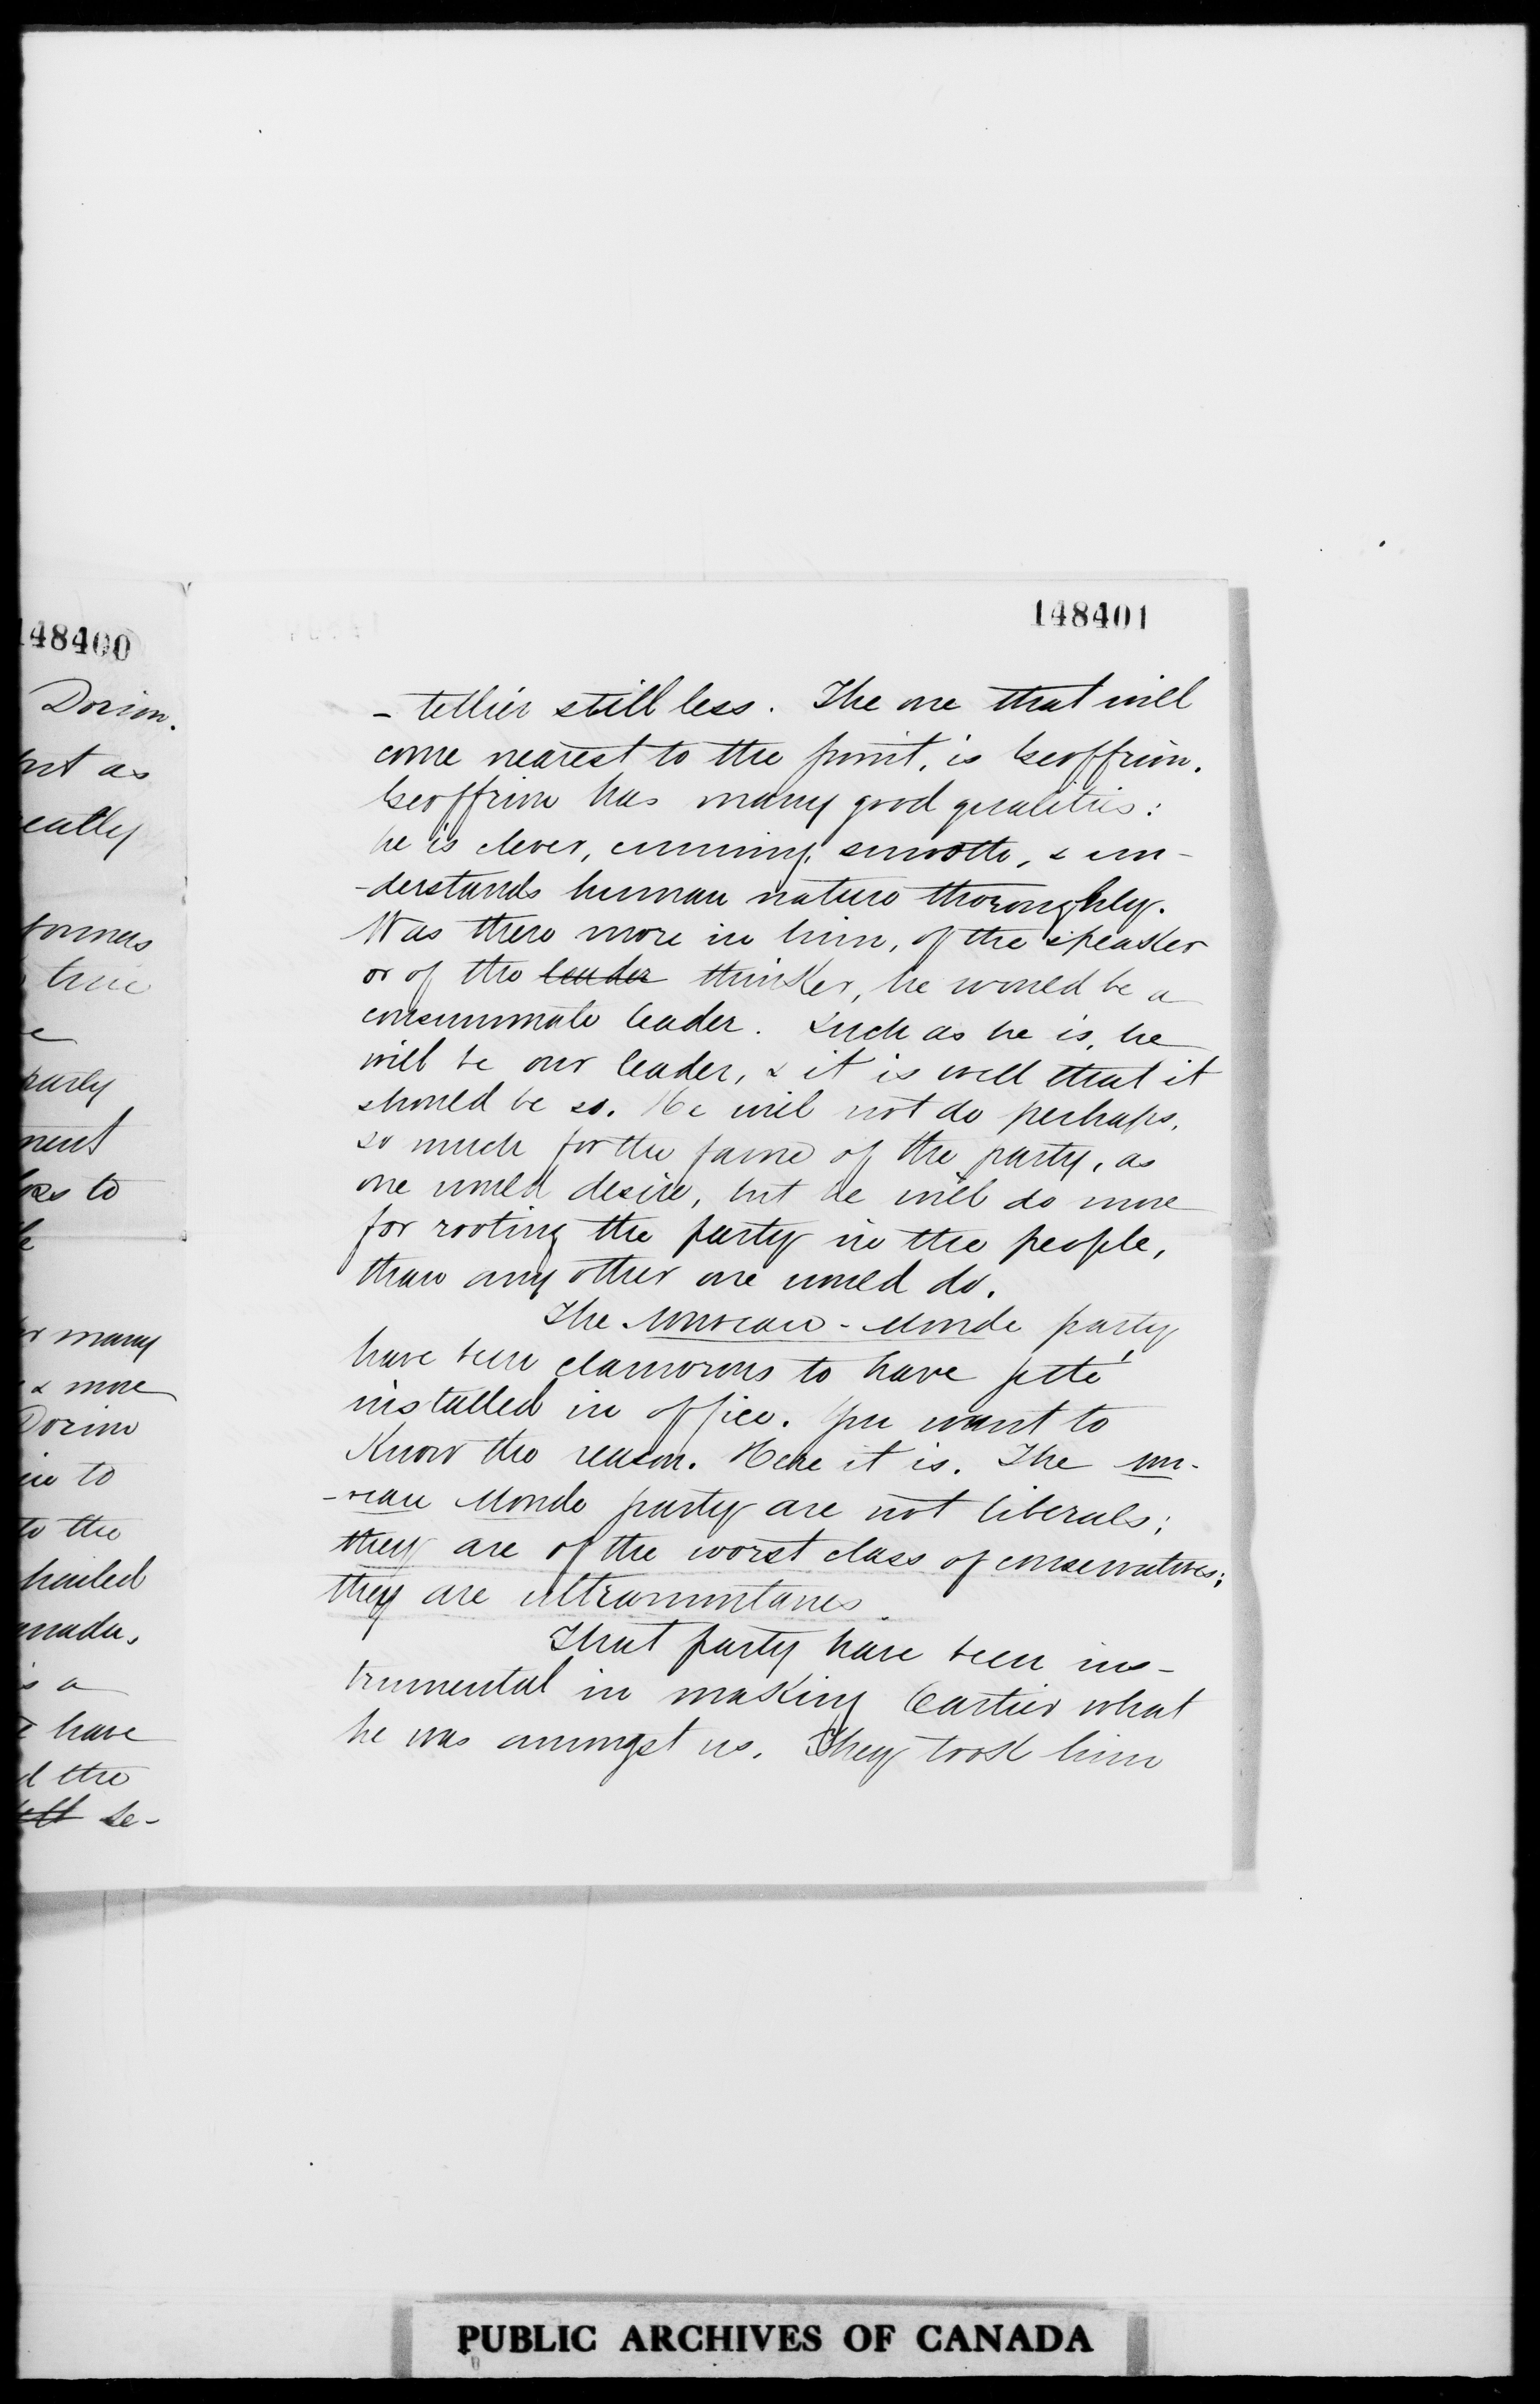 148400
Dorion.
148401
- tellier still less. The one that will
come nearest to the point, is Geoffrion.
Geoffrion has many good qualities:
he is clever, cunning, smooth, & un-
-derstands human nature thoroughly.
Was there more in him, of the speaker
or of the leader thinker, he would be a
consummate leader. Such as he is, he
will be our leader, & it is well that it
should be so. He will not do perhaps,
so much for the fame of the party, as
one would desire, but he will do more
for rooting the party in the people,
than any other one would do.
The Nouveau-Monde party
have been clamorous to have jetté
installed in office. You want to
Know the reason. Here it is. The nou-
-veau Monde party are not liberals;
they are of the worst class of conservatives;
they are ultramontanes.
That party have been ins-
trumental in making Cartier what
he was amongst us. They took him
PUBLIC ARCHIVES OF CANADA